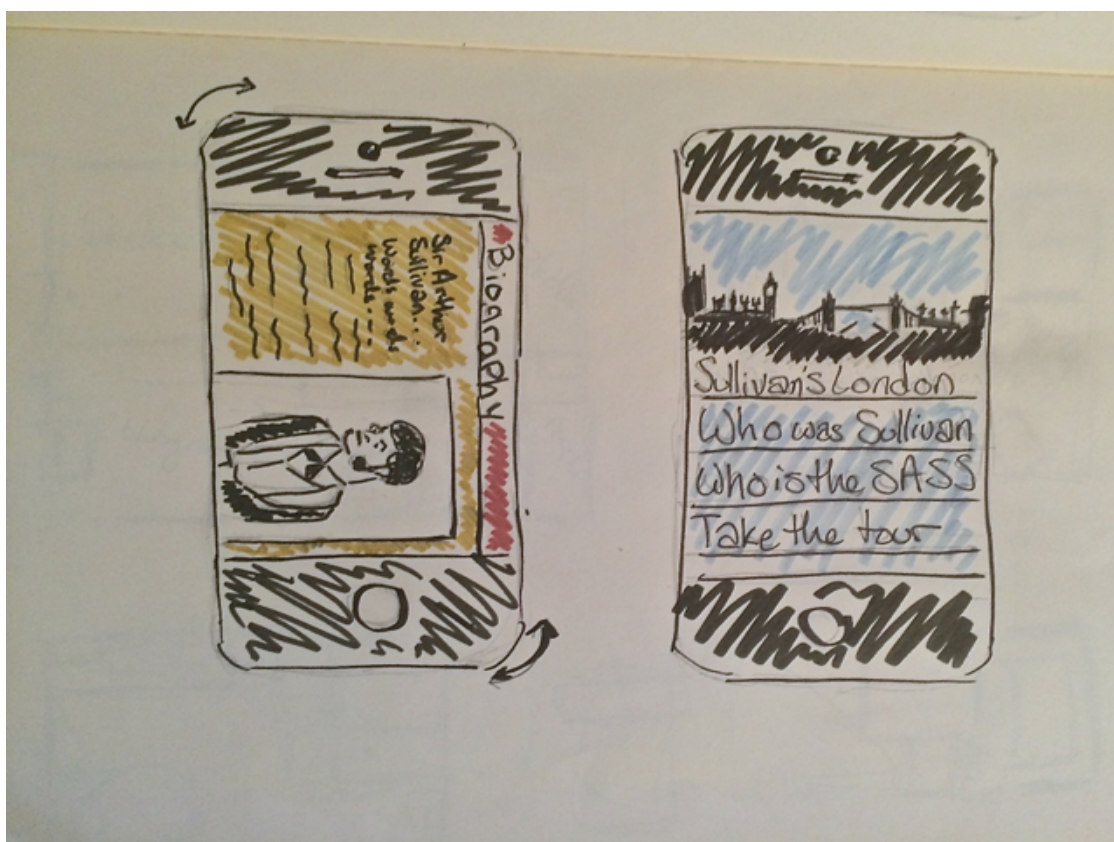 Biography
Sir Arthur
Sullivan...
Words words
words...
Sullivan's London
Who was Sullivan
Who is the SASS
Take the tour